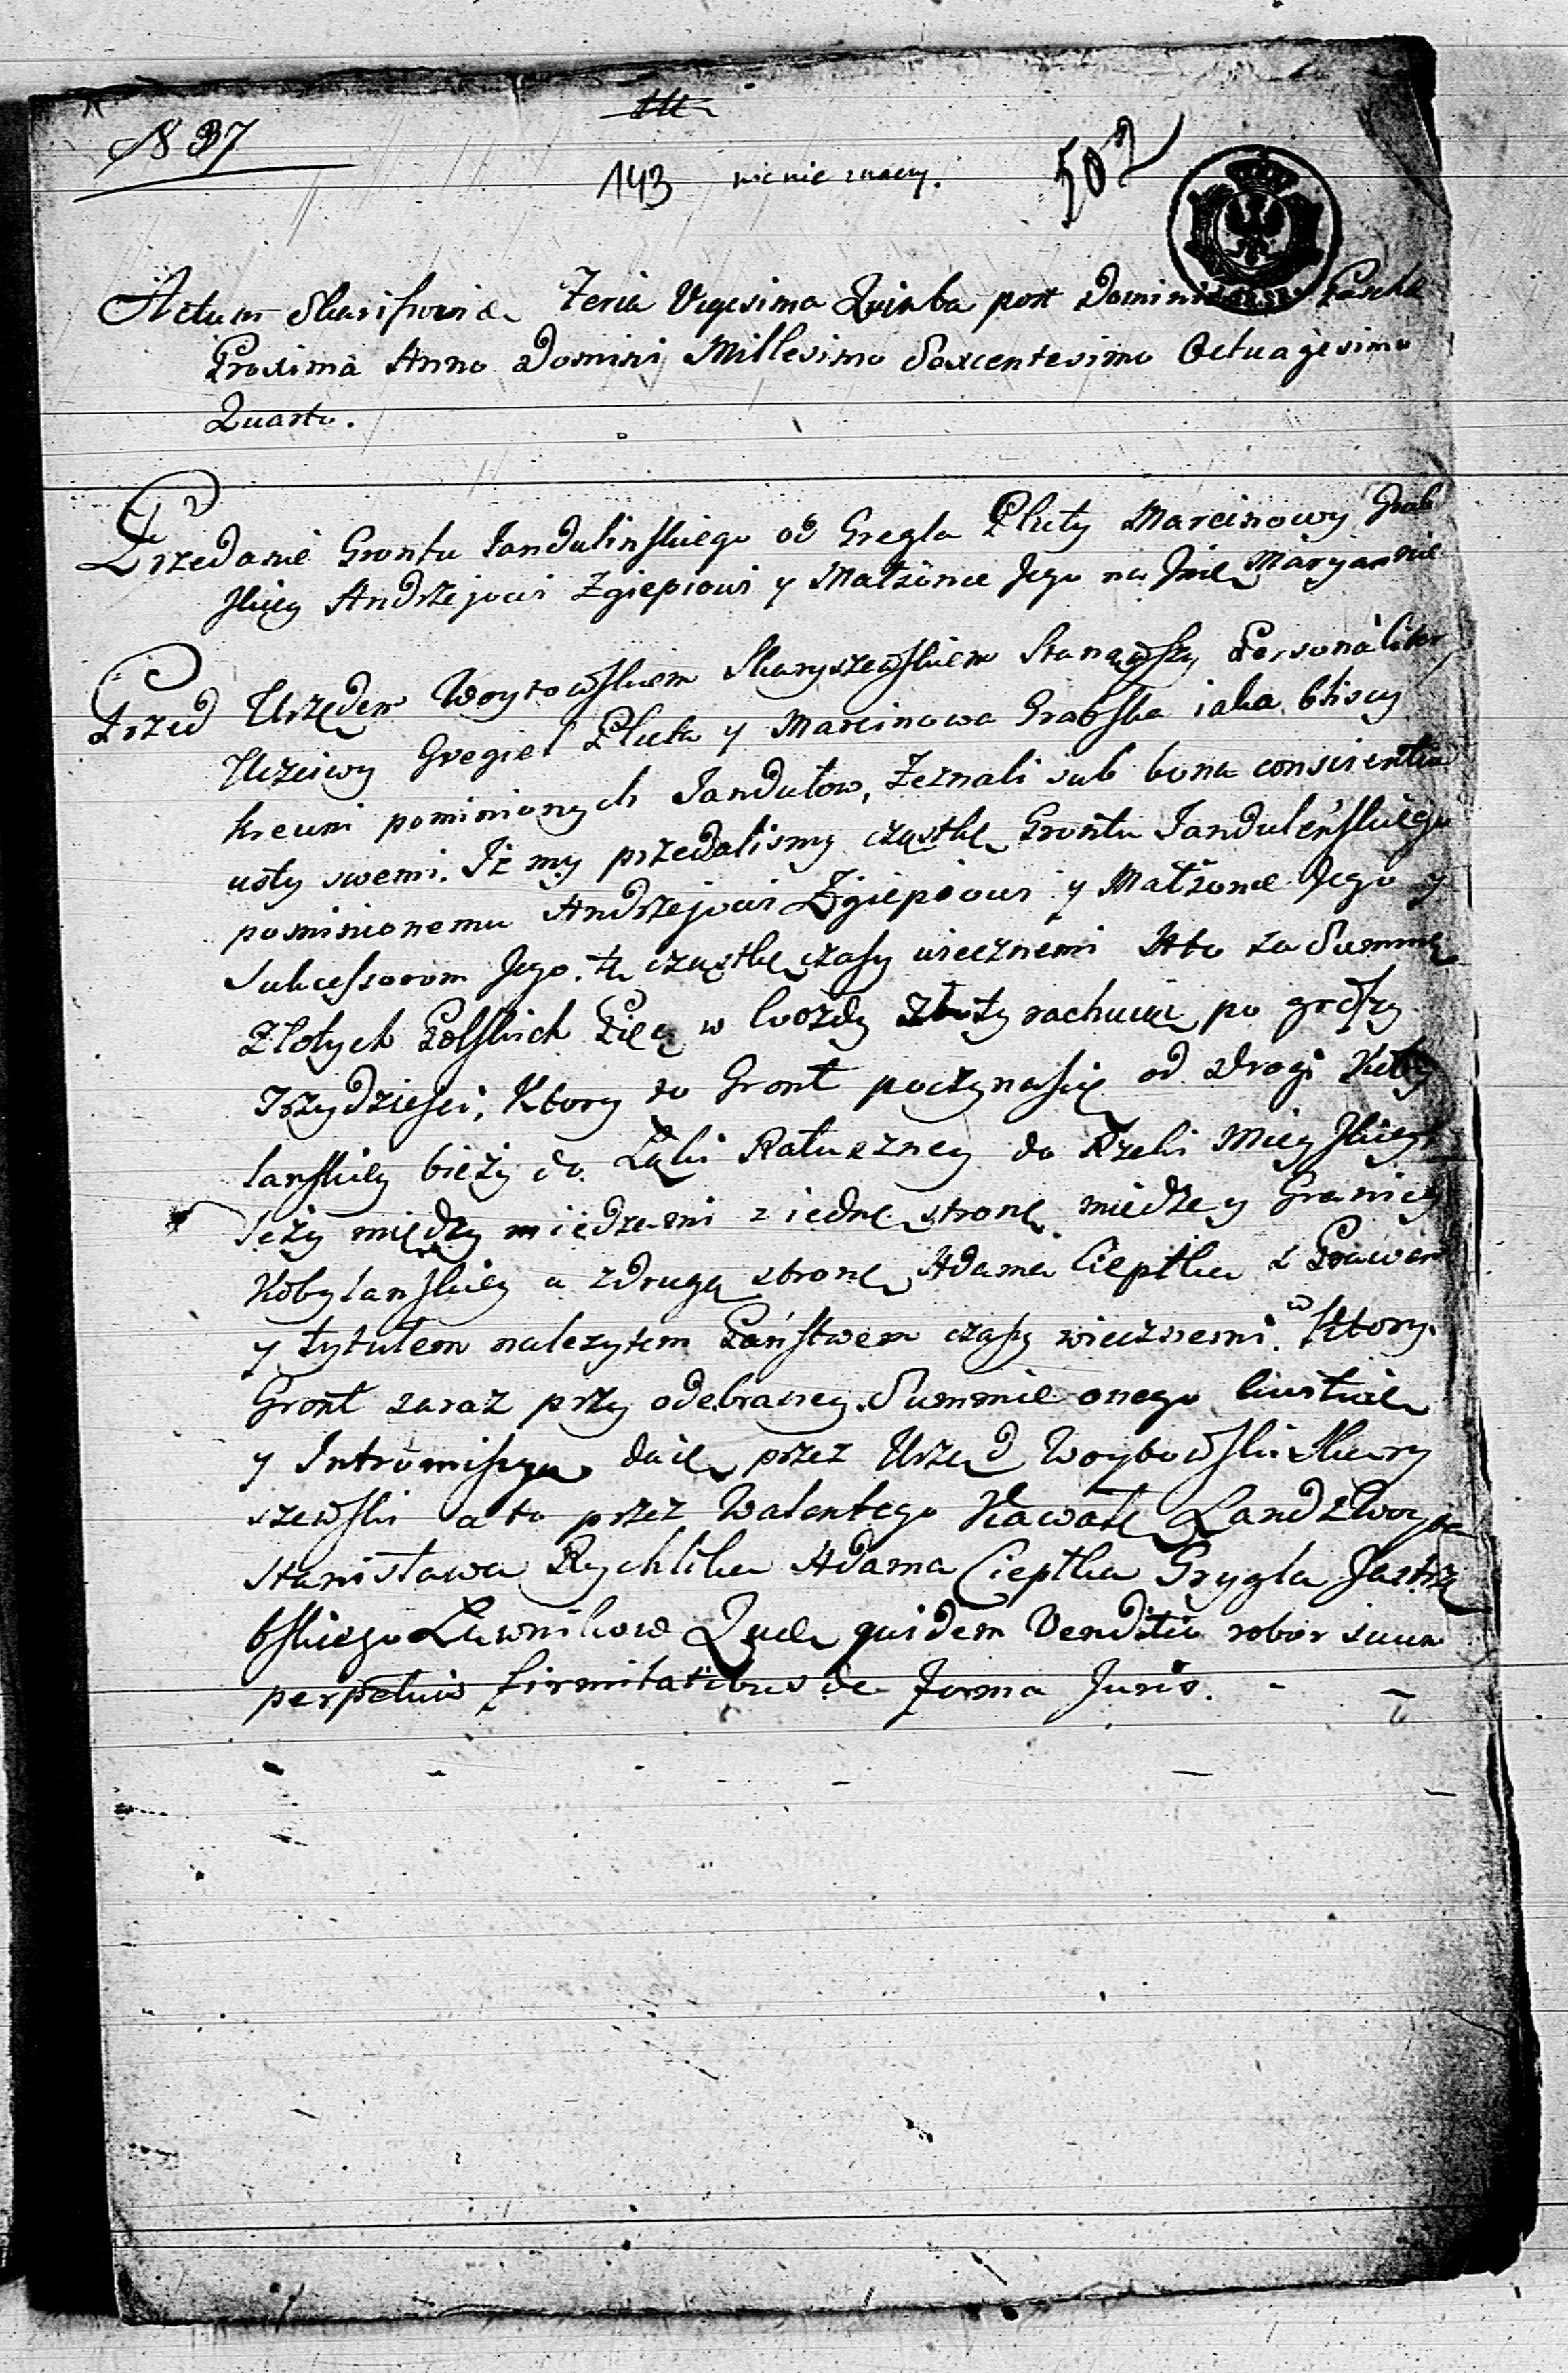 N 37
143 nic nie znaczy.
502
Actum Feria Vigesima Quinta post Pascha
Proxima Anno Domini Millesimo Sexcentesimo Octuagesimo
Quarto.
Przedanie Grontu Jandulinskiego od Gregla Pluty Marcinowy Grab
skiey Andrzejowi Zgiepiowi y Małżonce Jego na Imie Maryannie
Przed Urzędem Woytowskiem Skaryszewskiem Stanąwszy Personaliter
Uczciwy Gregiel Pluta y Marcinowa Grabska iako bliscy
krewni pominionych Jandułow, Zeznali sub bona conscientia
usty swemi. Iż my przedalismy cząstkę Grontu Jandulenskiego
pominionemu Andrzejowi Zgiepiowi y Małżonce Jego y
Sukcessorom Jego. tę cząstkę czasy wiecznemi Ato za Summę
Złotych Polskich Pięc w kozdy Złoty rachuiąc po groszy
trzydziesci, Ktory to Gront poczynasię od drogi Koby
lanskiey bieży do Łąki Ratuszney do Rzeki Mieyskiey
leży między miedzami z iednę stronę miedzey Granicy
Kobylanskiey a zdrugą stronę Adama Ciepłka z Prawem
y tytułem nalezytem Państwem czasy wiecznemi. w Ktory
Gront zaraz przy odebraney Summie onego
y Intromissya daię przez Urząd Woytowski Skary
szewski a to przez Walentego Kawałę
Stanisława Rychlika Adama Ciepłka Grygla Jastrzę
bskiego Ławnikow Quae quidem Venditio robor suum
perpetuis firmitatibus de forma Juris.